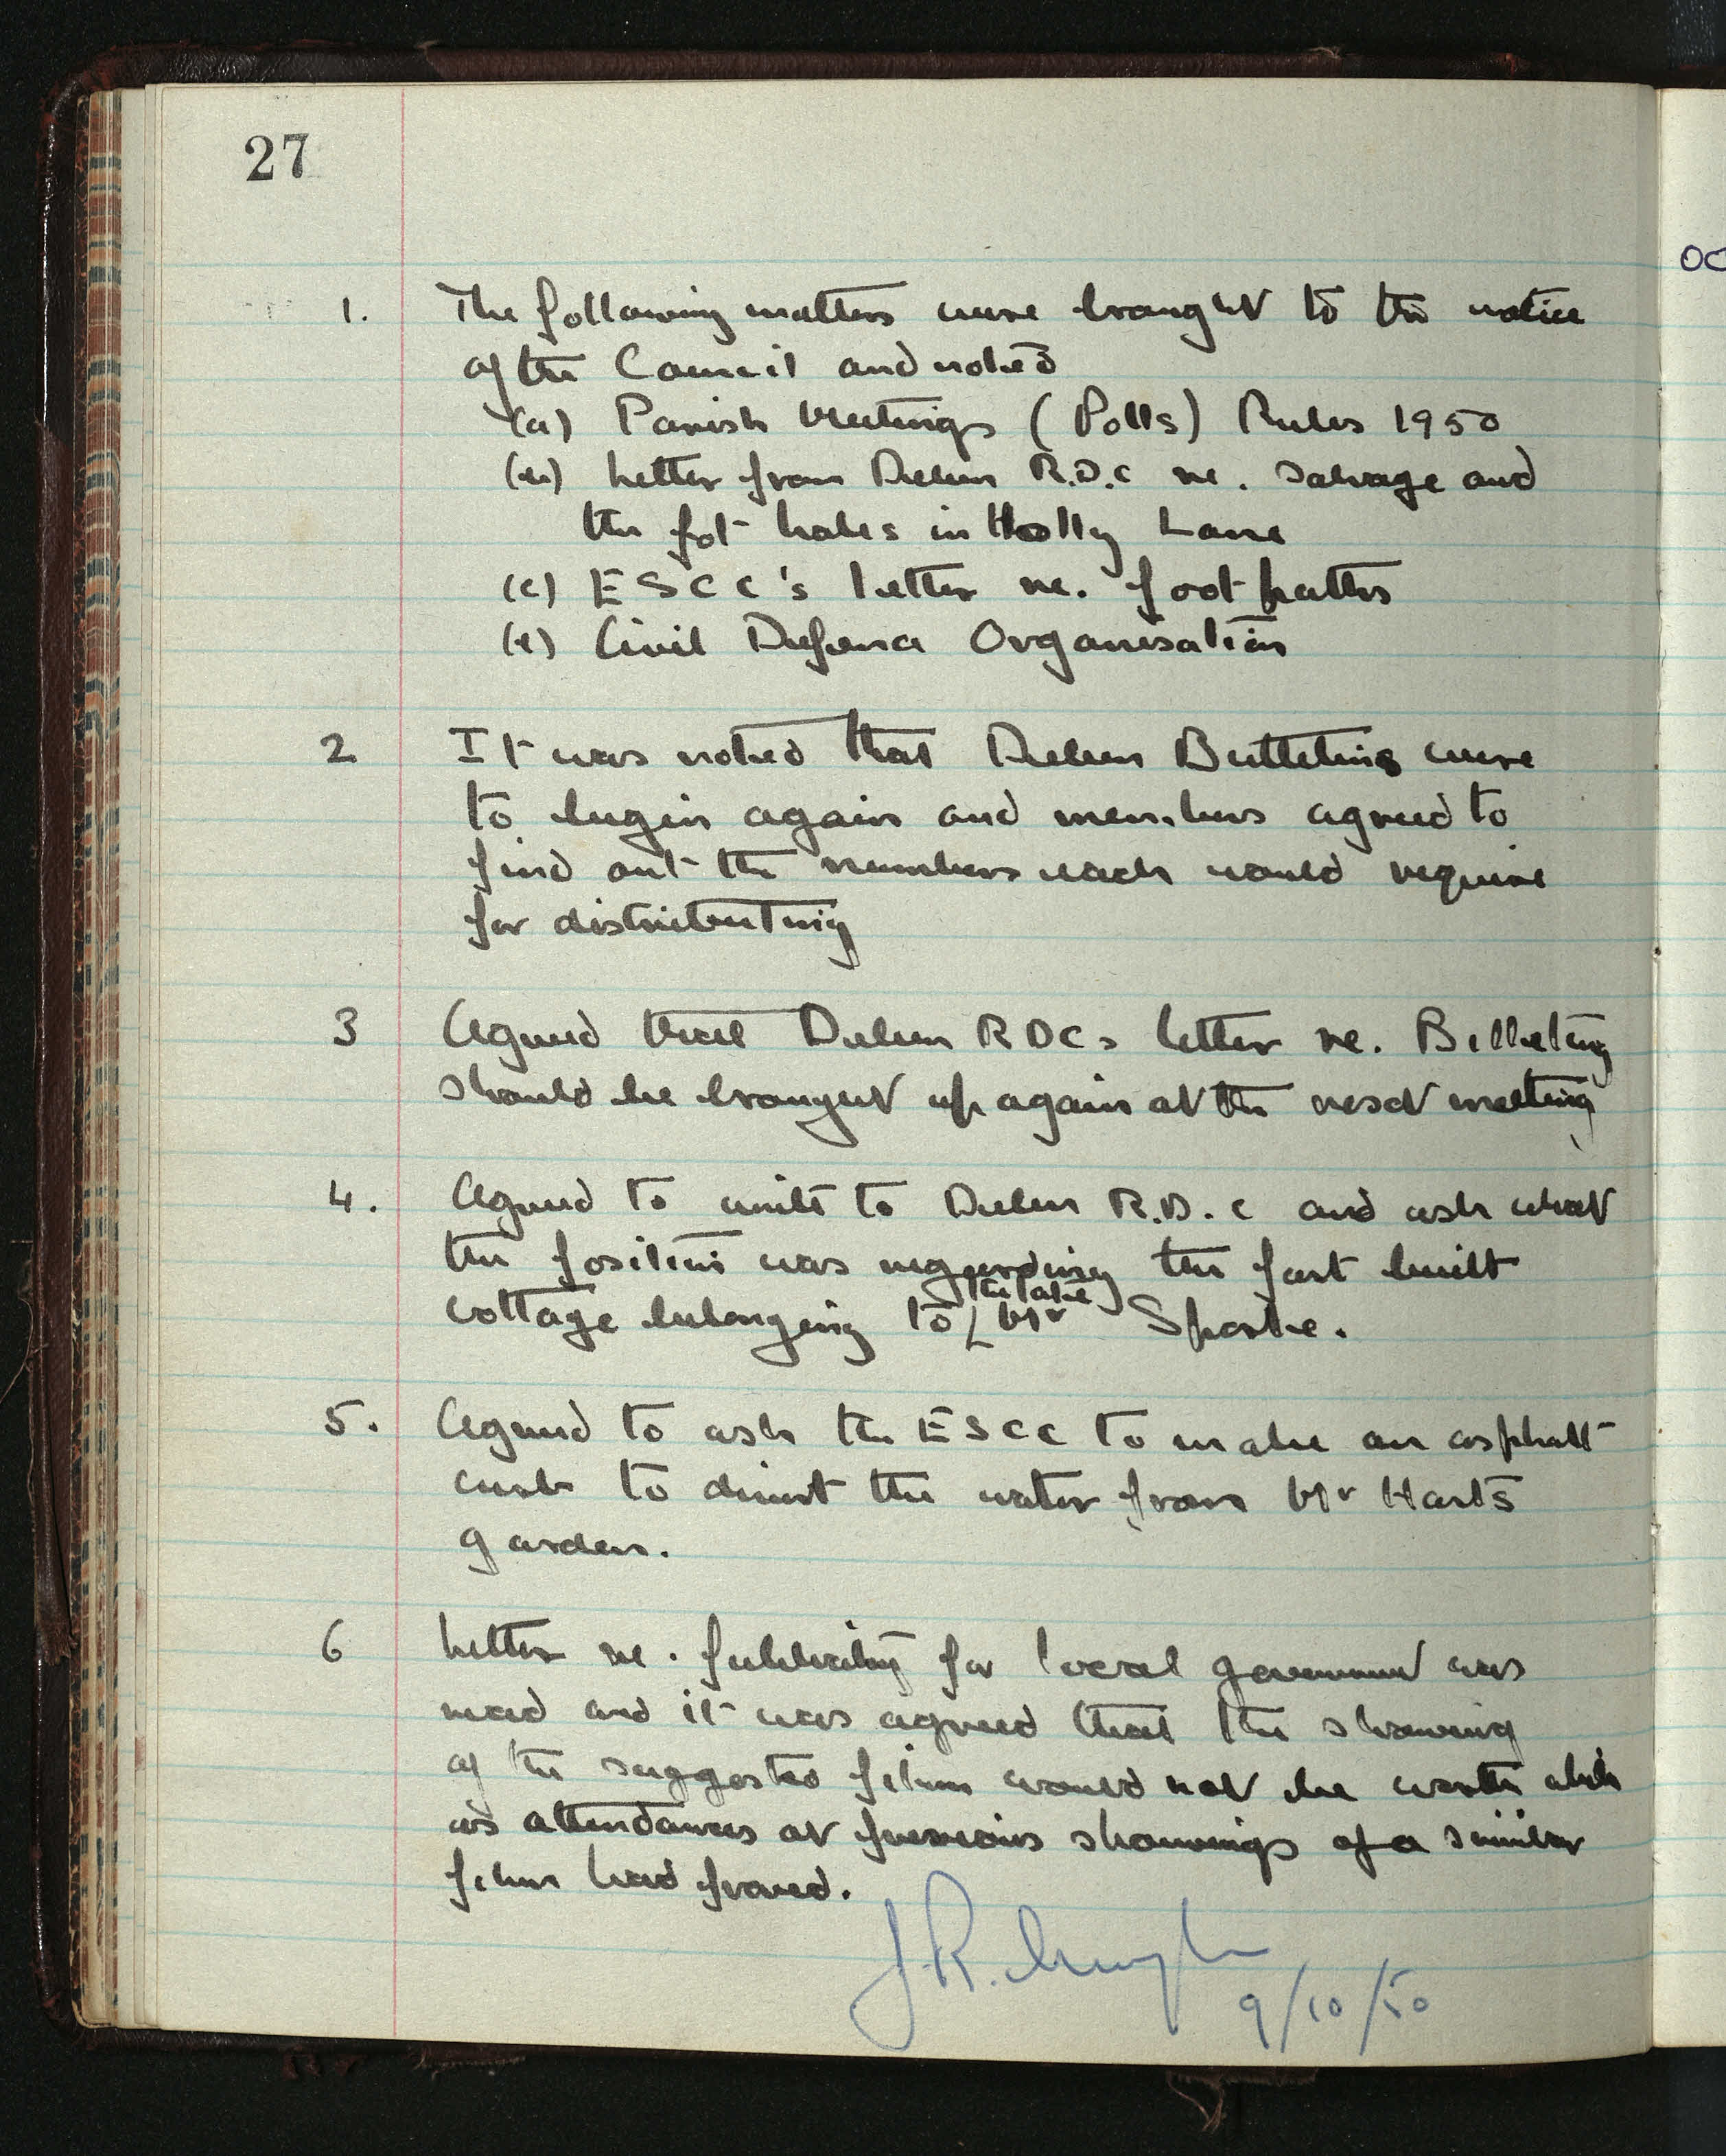 27
1. The following matters were brought to the notice
of the Council and noted
(a) Parish Meetings (Polls) Rules 1950
(b) Letter from Deben R.D.C re. Salvage and
the pot holes in Holly Lane
(c) ESCC's letter re. footpaths
(d) Civil Defence Organisation
2 It was noted that Deben Bulletins were
to begin again and members agreed to
find out the numbers each would require
for distributing
3 Agreed that Deben RDCs letter re. Billeting
should be brought up again at the next meeting
4. Agreed to write to Deben R.D.C and ask what
the position was regarding the part built
cottage belonging to the late Mr Sparke.
5. Agreed to ask the ESCC to make an asphalt
curb to divert the water from Mr Harts
garden.
6 Letter re. publicity for local government was
read and it was agreed that the showing
of the suggested films would not be worth while
as attendances at previous showings of a similar
film had proved.
J R.
9/10/50